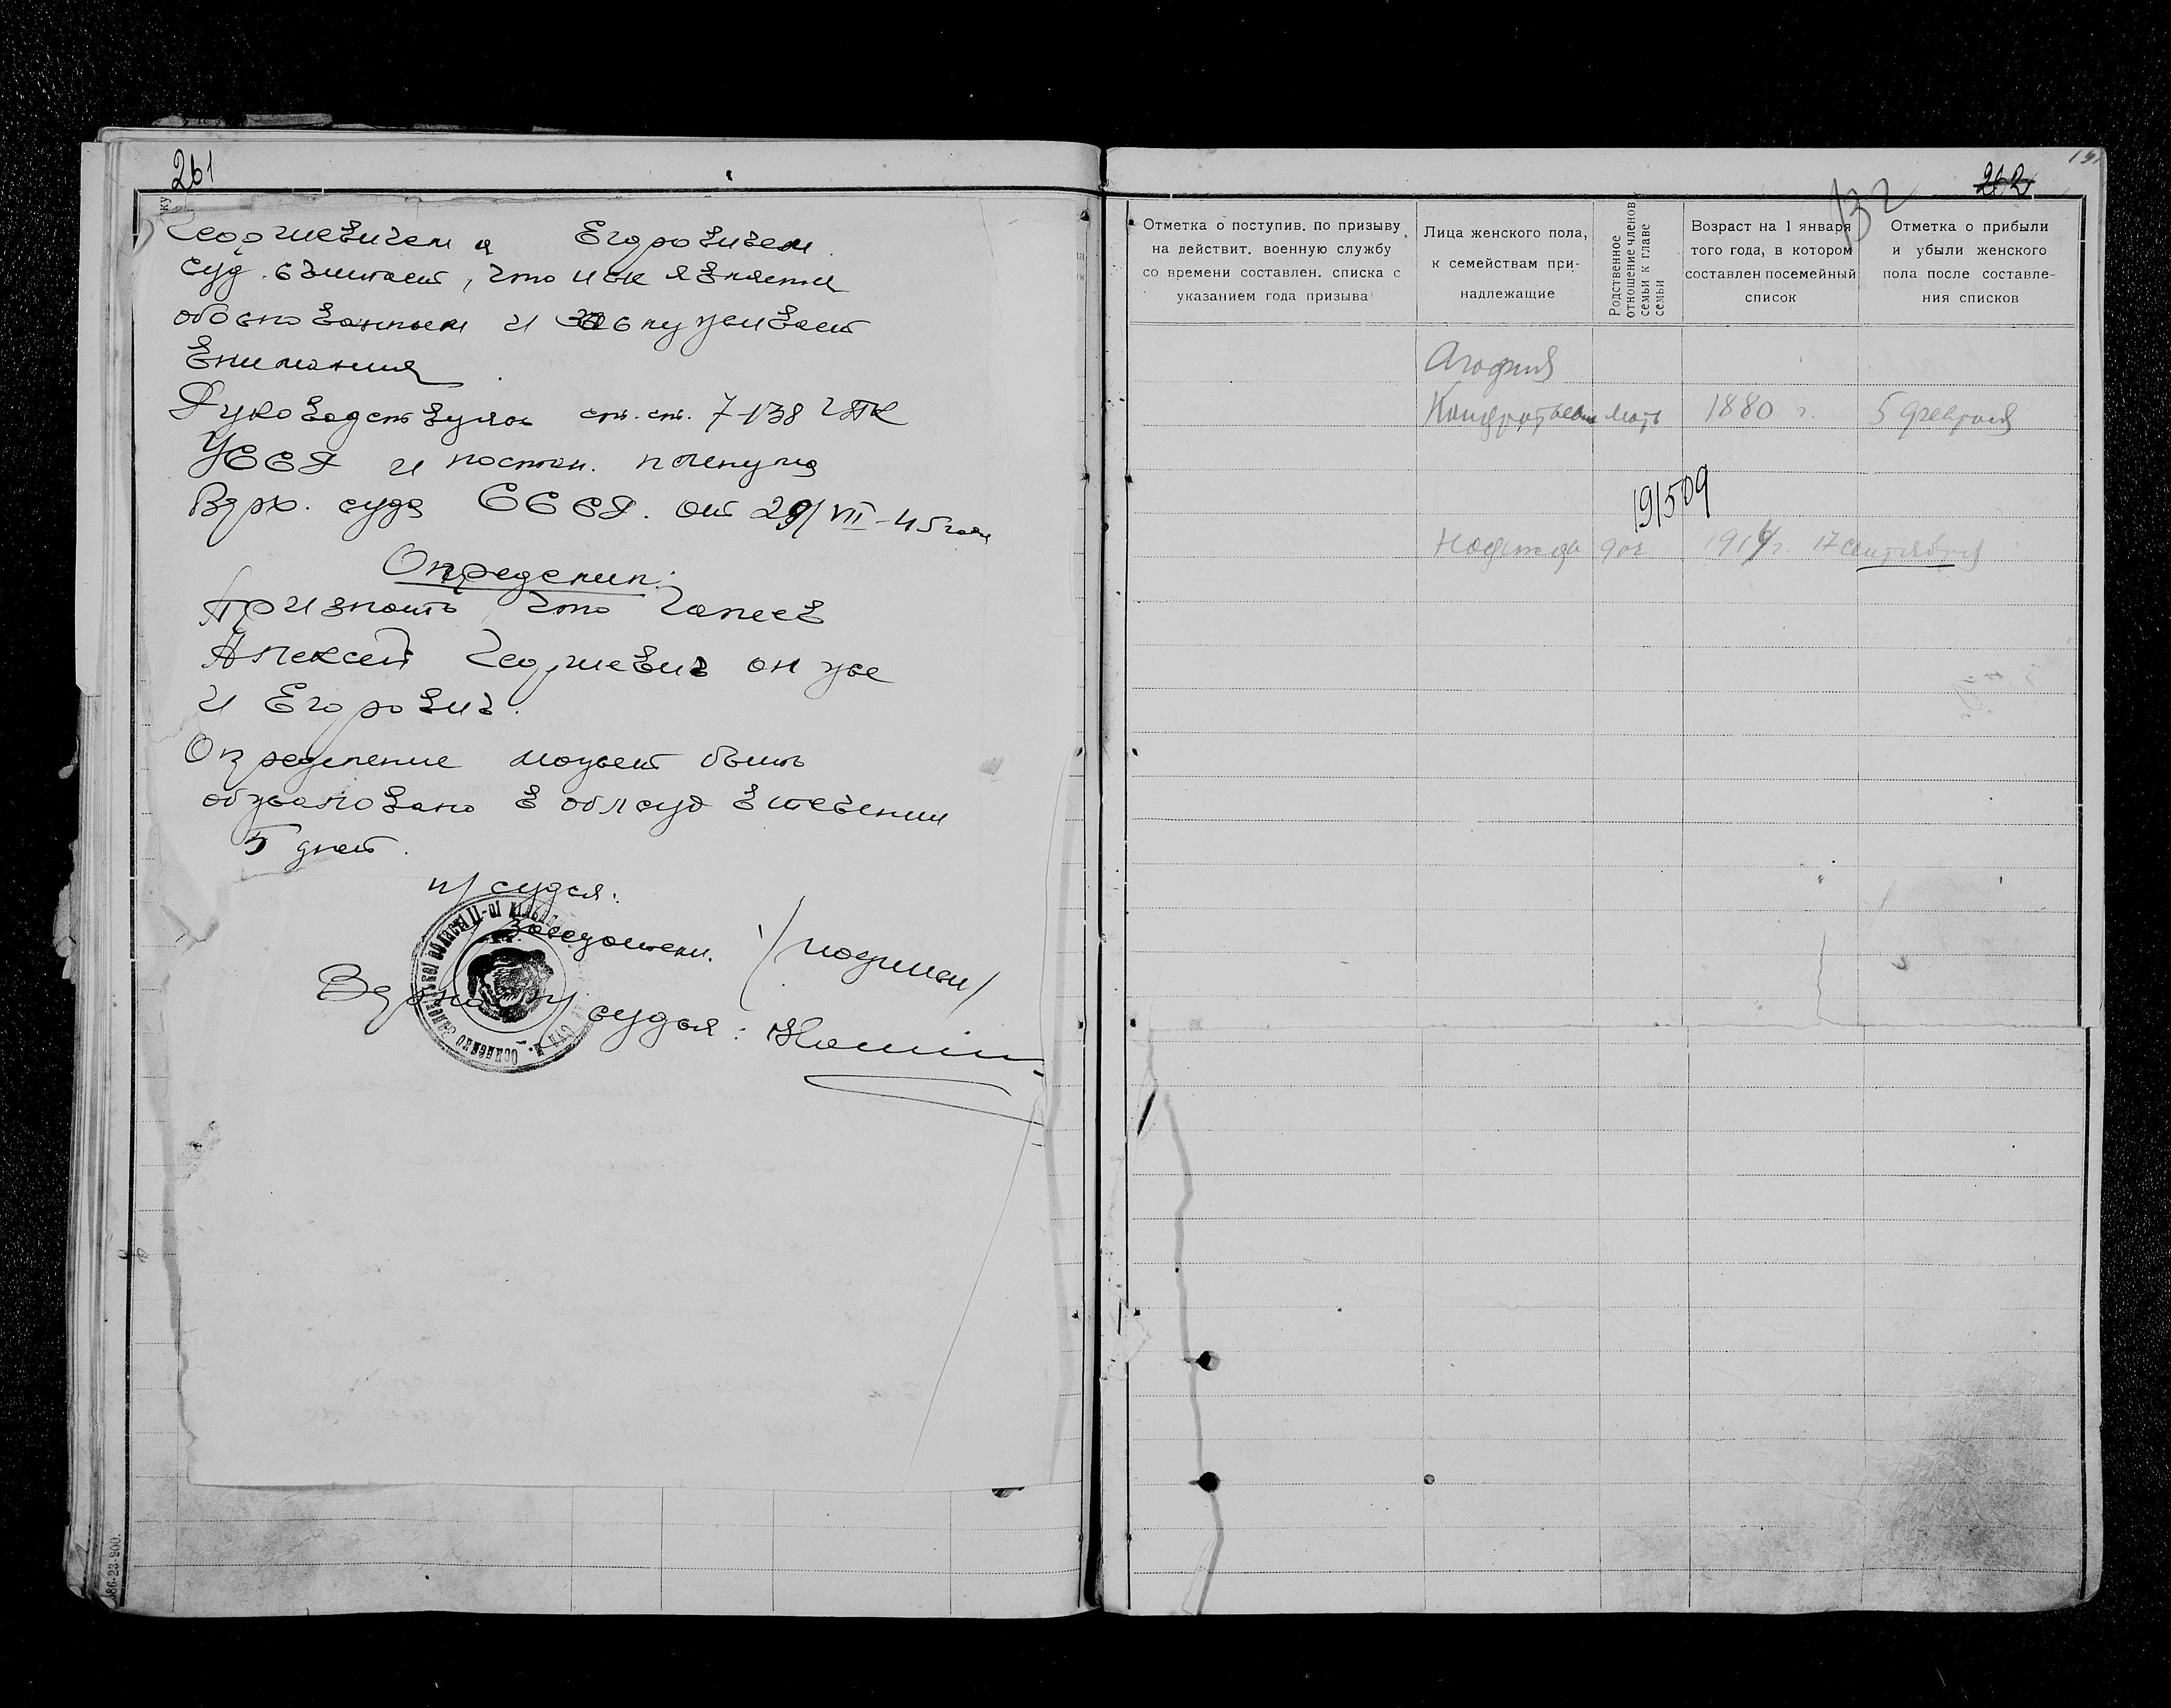 261
Георгиевичем и Егоровичем
суд считает, что иск является
обоснованным и заслуживает
внимания.
Руководствуясь ст. ст. 7-138 ГПК
УССР и постан. пленума
Верх. суда СССР. от 29/VII-45 года
Определил:
Признать, что Гапеев
Алексей Георгиевич он же
и Егорович.
Определение может быть
обжаловано в облсуд в течении
5 дней.
н/судья:
Заседатели. /подписи/
Верно: н/судья:
486-23-900.
132
262
Отметка о поступив. по призыву
на действит. военную службу
со времени составлен. списка с
указанием года призыва
Лица женского пола,
к семействам при-
надлежащие
Родственное
отношение членов
семьи к главе
семьи
Возраст на 1 января
того года, в котором
составлен посемейный
список
Отметка о прибыли
и убыли женского
пола после составле-
ния списков
Агафия
Кондратьевна мать 1880 г. 5 февраля
191509
Надежда доч 1914 г. 17 сентября